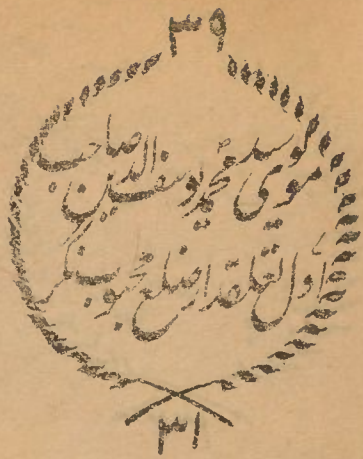 ۳۹
مولوی سید محمد یوسف الدین صاحب
اول تعلقدار ضلع محبوب نگر
۳۱